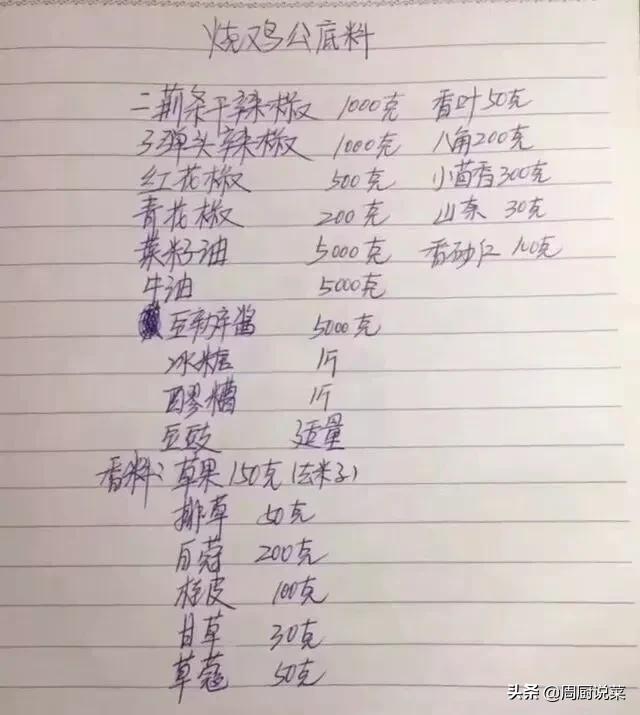 烧鸡公底料
二荆条干辣椒 1000克 香叶50克
子弹头辣椒 1000克 八角200克
红花椒 500克 小茴香300克
青花椒 200克 山奈 30克
菜籽油 5000克 香砂仁 100克
牛油 5000克
豆瓣酱 5000克
冰糖 1斤
醪糟 1斤
豆豉 适量
香料: 草果150克(去米子)
排草 50克
百蔻 200克
桂皮 100克
甘草 30克
草蔻 50克
头条 @周厨说菜